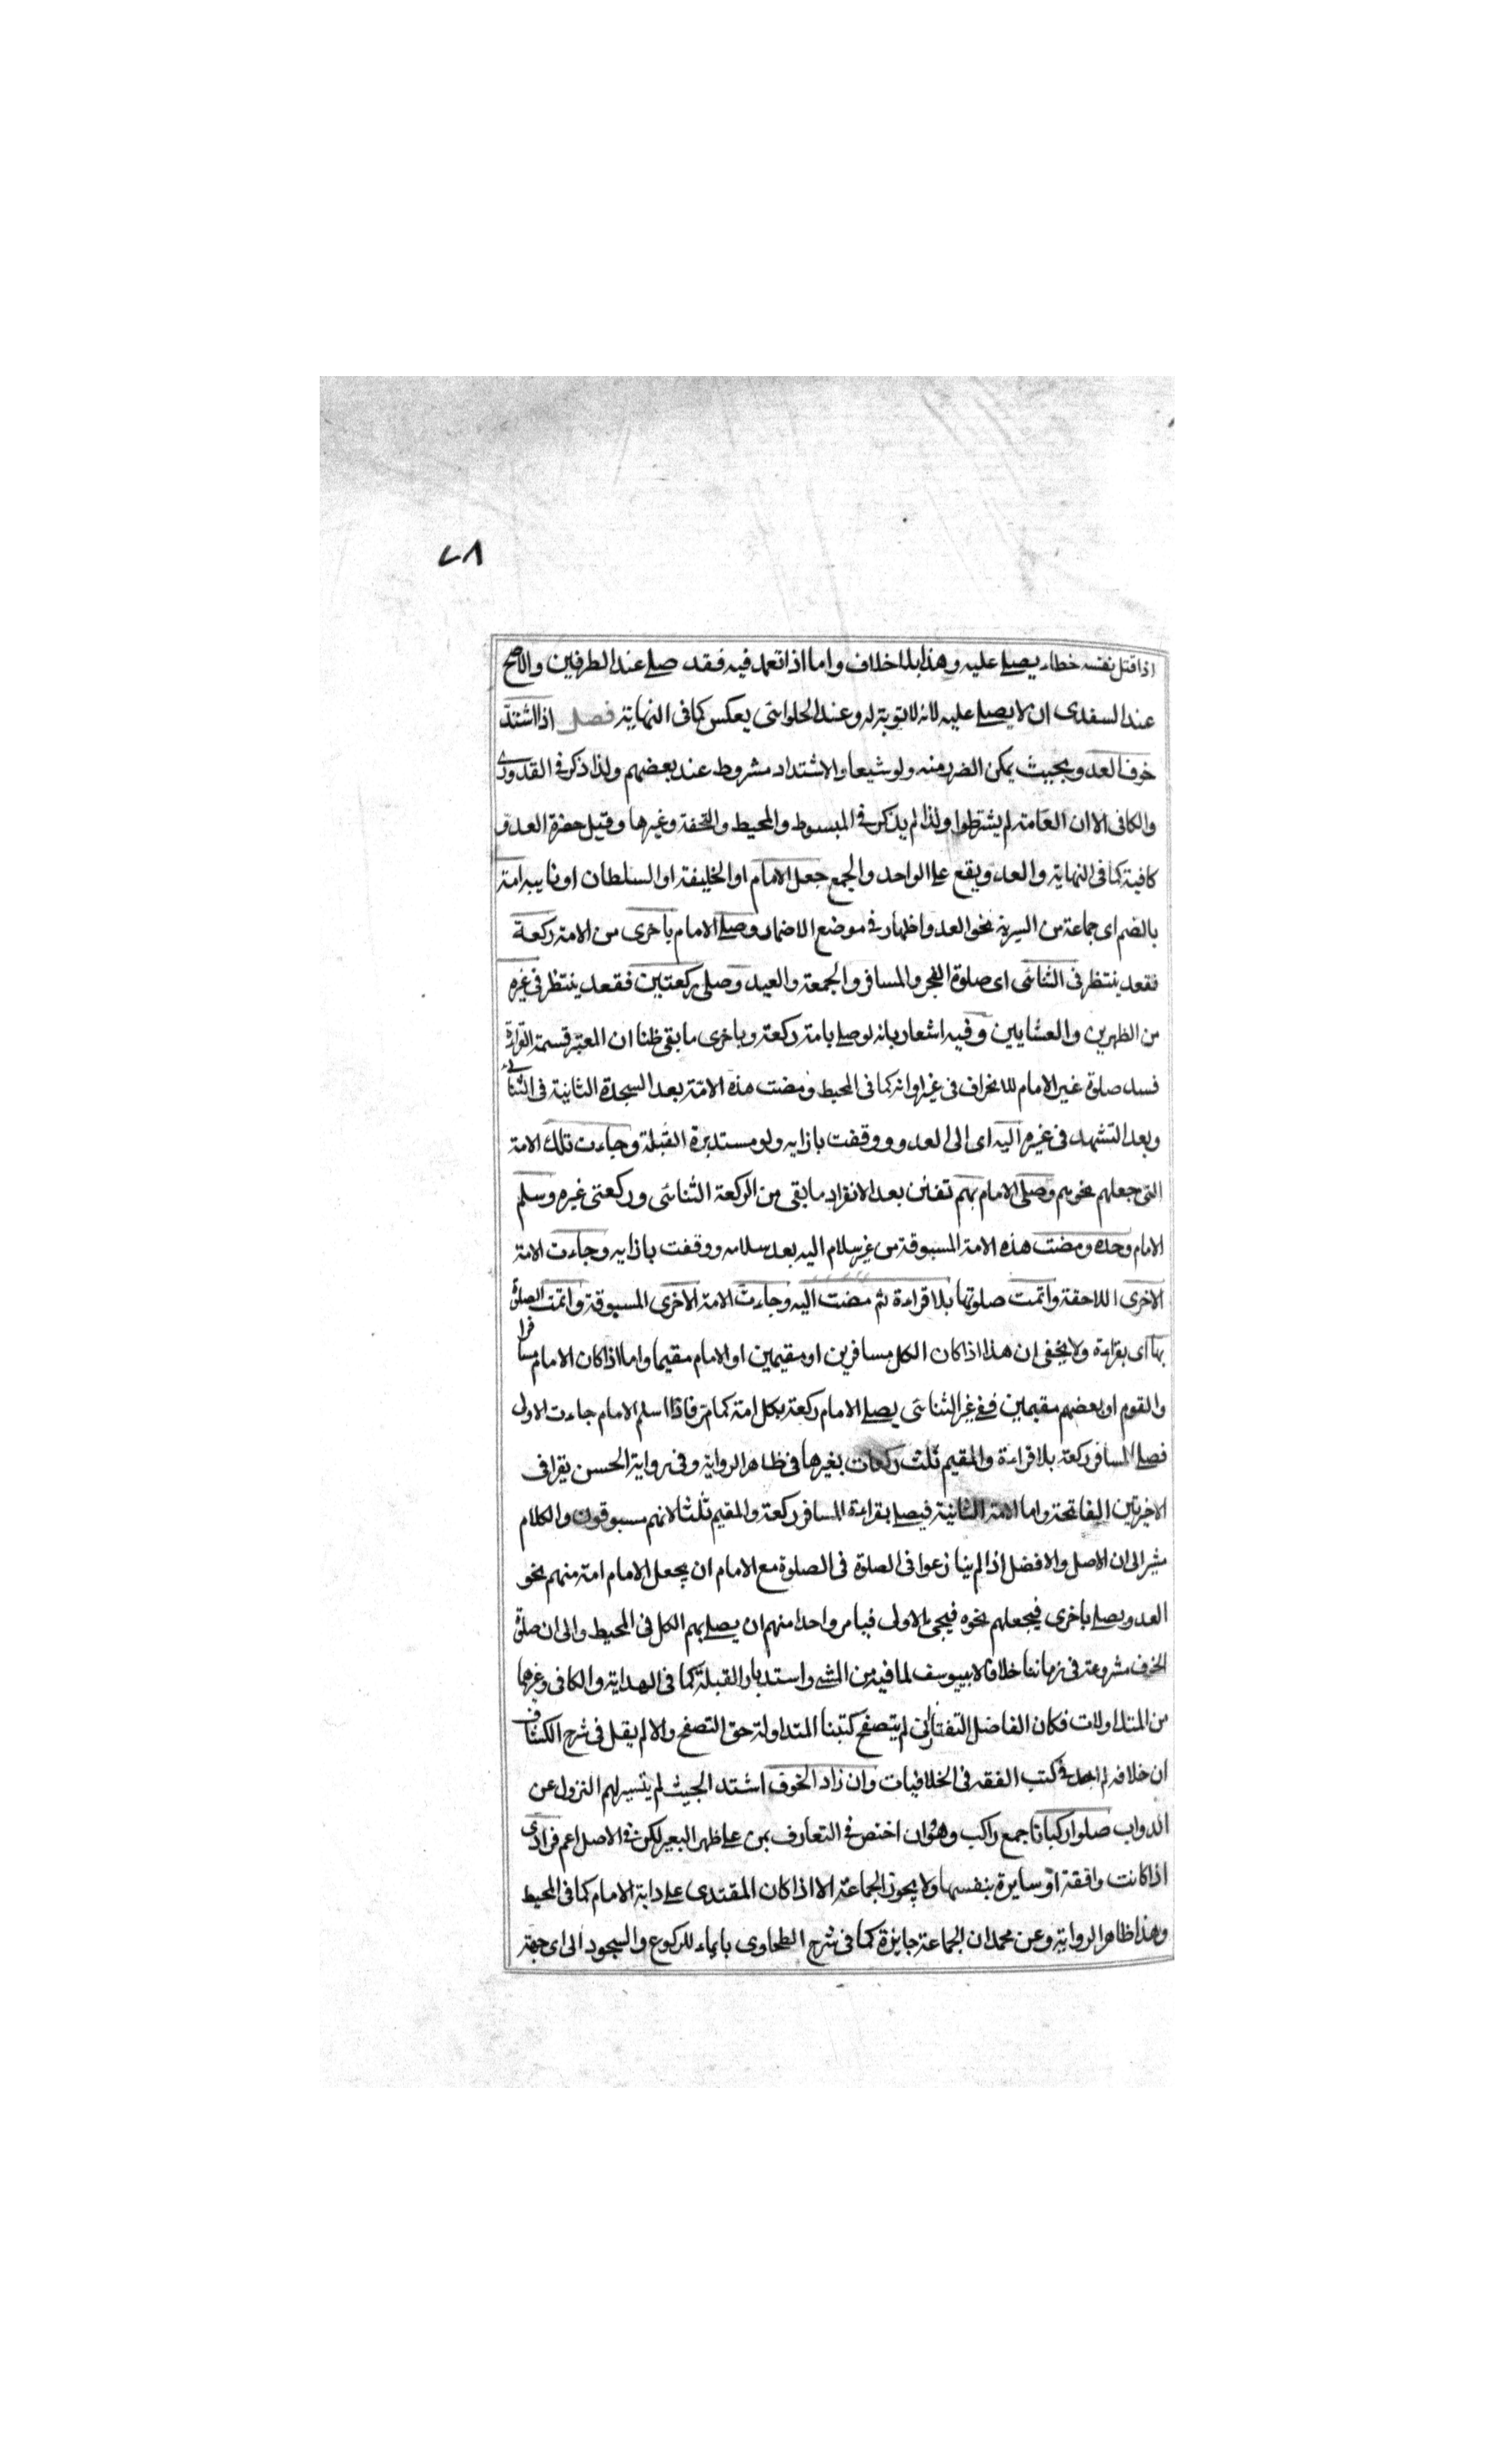 ٧٨
اذا قتل نفسه خطاء يصلے عليه وهذا بلا خلاف واما اذا تعمد فيه فقد صلے عند الطرفين والاصح
عند السغدى ان لا يصلے عليه لانه لا توبة له وعند الحلوانى يعكس كما فى النهاية فصل اذا اشتد
خوف العدو بحيث يمكن الضرر منه ولو شيعا والاشتداد مشروط عند بعضهم ولذا ذكر فى القدورى
والكافى الا ان العامة لم يشترطوا ولذا لم يذكر فى المبسوط والمحيط والتحفة وغيرها وقيل حضرة العدو
كافية كما فى النهاية والعدو يقع على الواحد والجمع جعل الامام او الخليفة او السلطان او نايبه امة
بالضم اى جماعة من السرية نحو العدو اظهار فى موضع الاضمار وصلے الامام باخرى من الامة ركعة
فقعد ينتظر فى الثنائى اى صلوة الفجر والمسافر والجمعة والعيد وصلى ركعتين فقعد ينتظر فى غيره
من الظهرين والعشايين وفيه اشعار بانه لو صلے بامة ركعة وباخرى ما بقى ظنا ان المعتبر قسمة القراءة
فسد صلوة غير الامام للانحراف فى غير اوانه كما فى المحيط ومضت هذه الامة بعد السجدة الثانية فى الثنائى
وبعد التشهد فى غيره اليه اى الى العدو ووقفت بازايه ولو مستدبرة القبلة وجاءت تلك الامة
التى جعلهم نحوهم وصلى الامام بهم تفنن بعد الانفراد ما بقى من الركعة الثنائى وركعتى غيره وسلم
الامام وحده ومضت هذه الامة المسبوقة من غير سلام اليه بعد سلامه ووقفت بازايه وجاءت الامة
الاخرى اللاحقة واتمت صلوتها بلا قراءة ثم مضت اليه وجاءت الامة الاخرى المسبوقة واتمت الصلوة
بها اى بقراءة ولا يخفى ان هذا اذا كان الكل مسافرين او مقيمين او الامام مقيما واما اذا كان الامام مسافرا
والقوم او بعضهم مقيمين ففے غير الثنائى يصلے الامام ركعة بكل امة كما مر فاذا سلم الامام جاءت الاولى
فصلے المسافر ركعة بلا قراءة والمقيم ثلث ركعات بغيرها فى ظاهر الرواية وفى رواية الحسن يقرا فى
الاخريتين الفاتحة واما الامة الثانية فيصلے بقراءة المسافر ركعة والمقيم ثلثا لانهم مسبوقون والكلام
مشير الى ان الاصل والافضل اذا لم ينازعوا فى الصلوة فى الصلوة مع الامام ان يجعل الامام امة منهم نحو
العدو ويصلے باخرى فيجعلهم نحوه فيجئ الاولى فيامر واحدا منهم ان يصلے بهم الكل فى المحيط والى ان صلوة
الخوف مشروعة فى زماننا خلافا لابييوسف لما فيه من المشى واستدبار القبلة كما فى الهداية والكافى وغيرهما
من المتداولات فكان الفاضل التفتازانى لم يتصفح كتبنا المتداولة حق التصفح والا لم يقل فى شرح الكشاف
ان خلافه لم اجد فى كتب الفقه فى الخلافيات وان زاد الخوف اشتد الجيث لم يتيسر لهم النزول عن
الدواب صلوا ركبانا جمع راكب وهو وان اختص فى التعارف بمن على ظهر البعير لكن فى الاصل اعم فرادى
اذا كانت واقفة او سايرة بنفسها ولا يجوز الجماعة الا اذا كان المقتدى على دابة الامام كما فى المحيط
وهذا ظاهر الرواية وعن محمد ان الجماعة جايزة كما فى شرح الطحاوى بايماء للركوع والسجود الى اى جهة